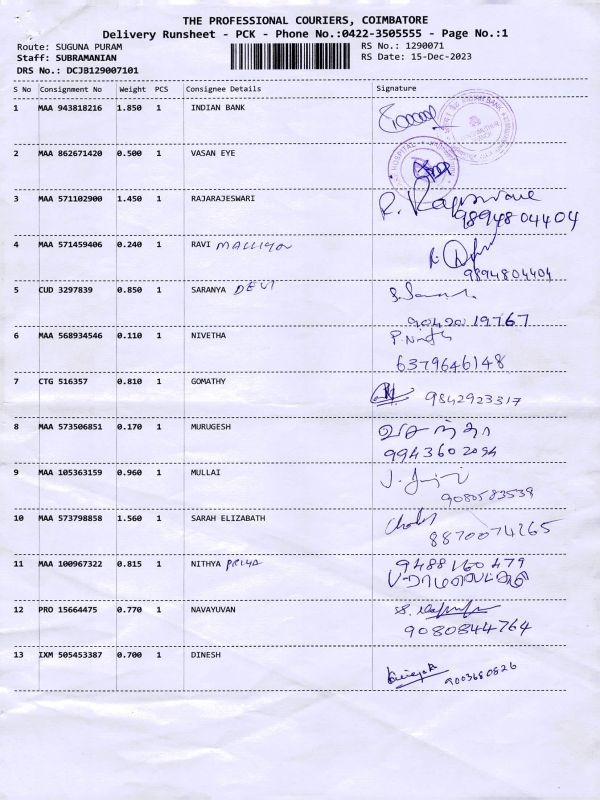 THE PROFESSIONAL COURIERS, COIMBATORE
Delivery Runsheet - PCK - Phone No.:0422-3505555 - Page No.:1
Route: SUGUNA PURAM RS No.: 1290071
Staff: SUBRAMANIAN RS Date: 15-Dec-2023
DRS No.: DCJB129007101
S No Consignment No Weight PCS Consignee Details Signature
1 MAA 943818216 1.850 1 INDIAN BANK
2 MAA 862671420 0.500 1 VASAN EYE
HOSPITAL
3 MAA 571102900 1.450 1 RAJARAJESWARI R.
9894804404
4 MAA 571459406 0.240 1 RAVI
9894804404
5 CUD 3297839 0.850 1 SARANYA DEVI
9042019767
6 MAA 568934546 0.110 1 NIVETHA
6379646148
7 CTG 516357 0.810 1 GOMATHY 9842923317
8 MAA 573506851 0.170 1 MURUGESH வசந்தா
9943602094
9 MAA 105363159 0.960 1 MULLAI
9080583539
10 MAA 573798858 1.560 1 SARAH ELIZABATH
8870074265
11 MAA 100967322 0.815 1 NITHYA PRIYA 9488160479
12 PRO 15664475 0.770 1 NAVAYUVAN
9080844764
13 IXM 505453387 0.700 1 DINESH
9003680826